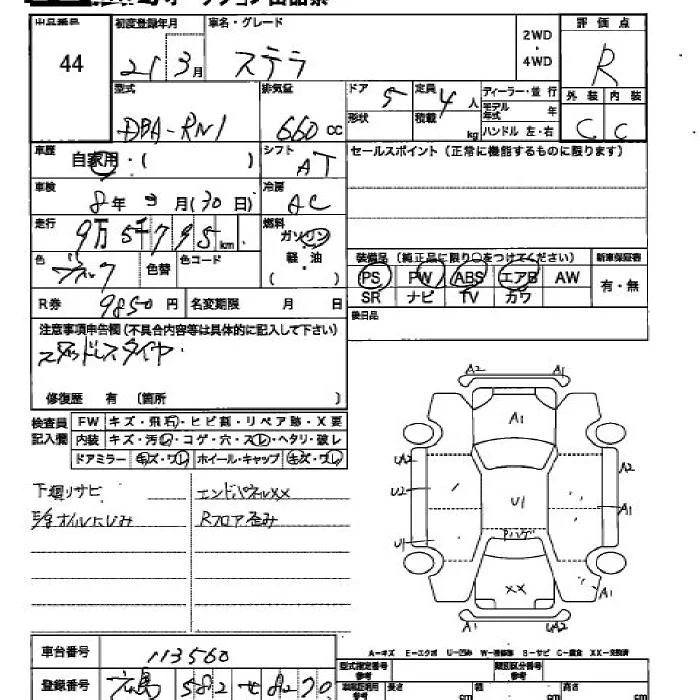 出品番号 初度登録年月 車名・グレード 2WD・4WD 評価点
44 21 3月 ステラ R
型式 排気量 ドア 定員 ディーラー・並行 外装 内装
DBA-RN1 660cc 5 4人 モデル年式 年 C C
形状 積載 kg ハンドル 左・右
車歴 シフト セールスポイント(正常に機能するものに限ります)
自家用・( ) AT
車検 冷房
8年 3月(30日) AC
走行 燃料
9万5千795km ガソリン
色 色替 色コード 軽油 装備品(純正品に限り○をつけてください) 新車保証書
( ) PS PW ABS エアB AW 有・無
SR ナビ TV カワ
R券 9850円 名変期限 月 日 後日品
注意事項申告欄(不具合内容等は具体的に記入して下さい)
スタッドレスタイヤ
修復歴 有 〔箇所 〕
検査員記入欄 FW キズ・飛石・ヒビ割・リペア跡・X要
内装 キズ・汚レ・コゲ・穴・スレ・ヘタリ・破レ
ドアミラー キズ・ワレ ホイール・キャップ キズ・ワレ
下廻リサビ エンドパネルXX
オイルにじみ Rフロア歪み
A2 A1
A1
UA2 A2
U2 U1 A1
U1 Pハゲ
XX A1
A1 UA2
A-キズ E-エクボ U-凹み W-補修跡 S-サビ C-腐食 XX-交換済
車台番号 113560
型式指定番号 類別区分番号
登録番号 広島 582 せ 8270
長さ cm 幅 cm 高さ cm